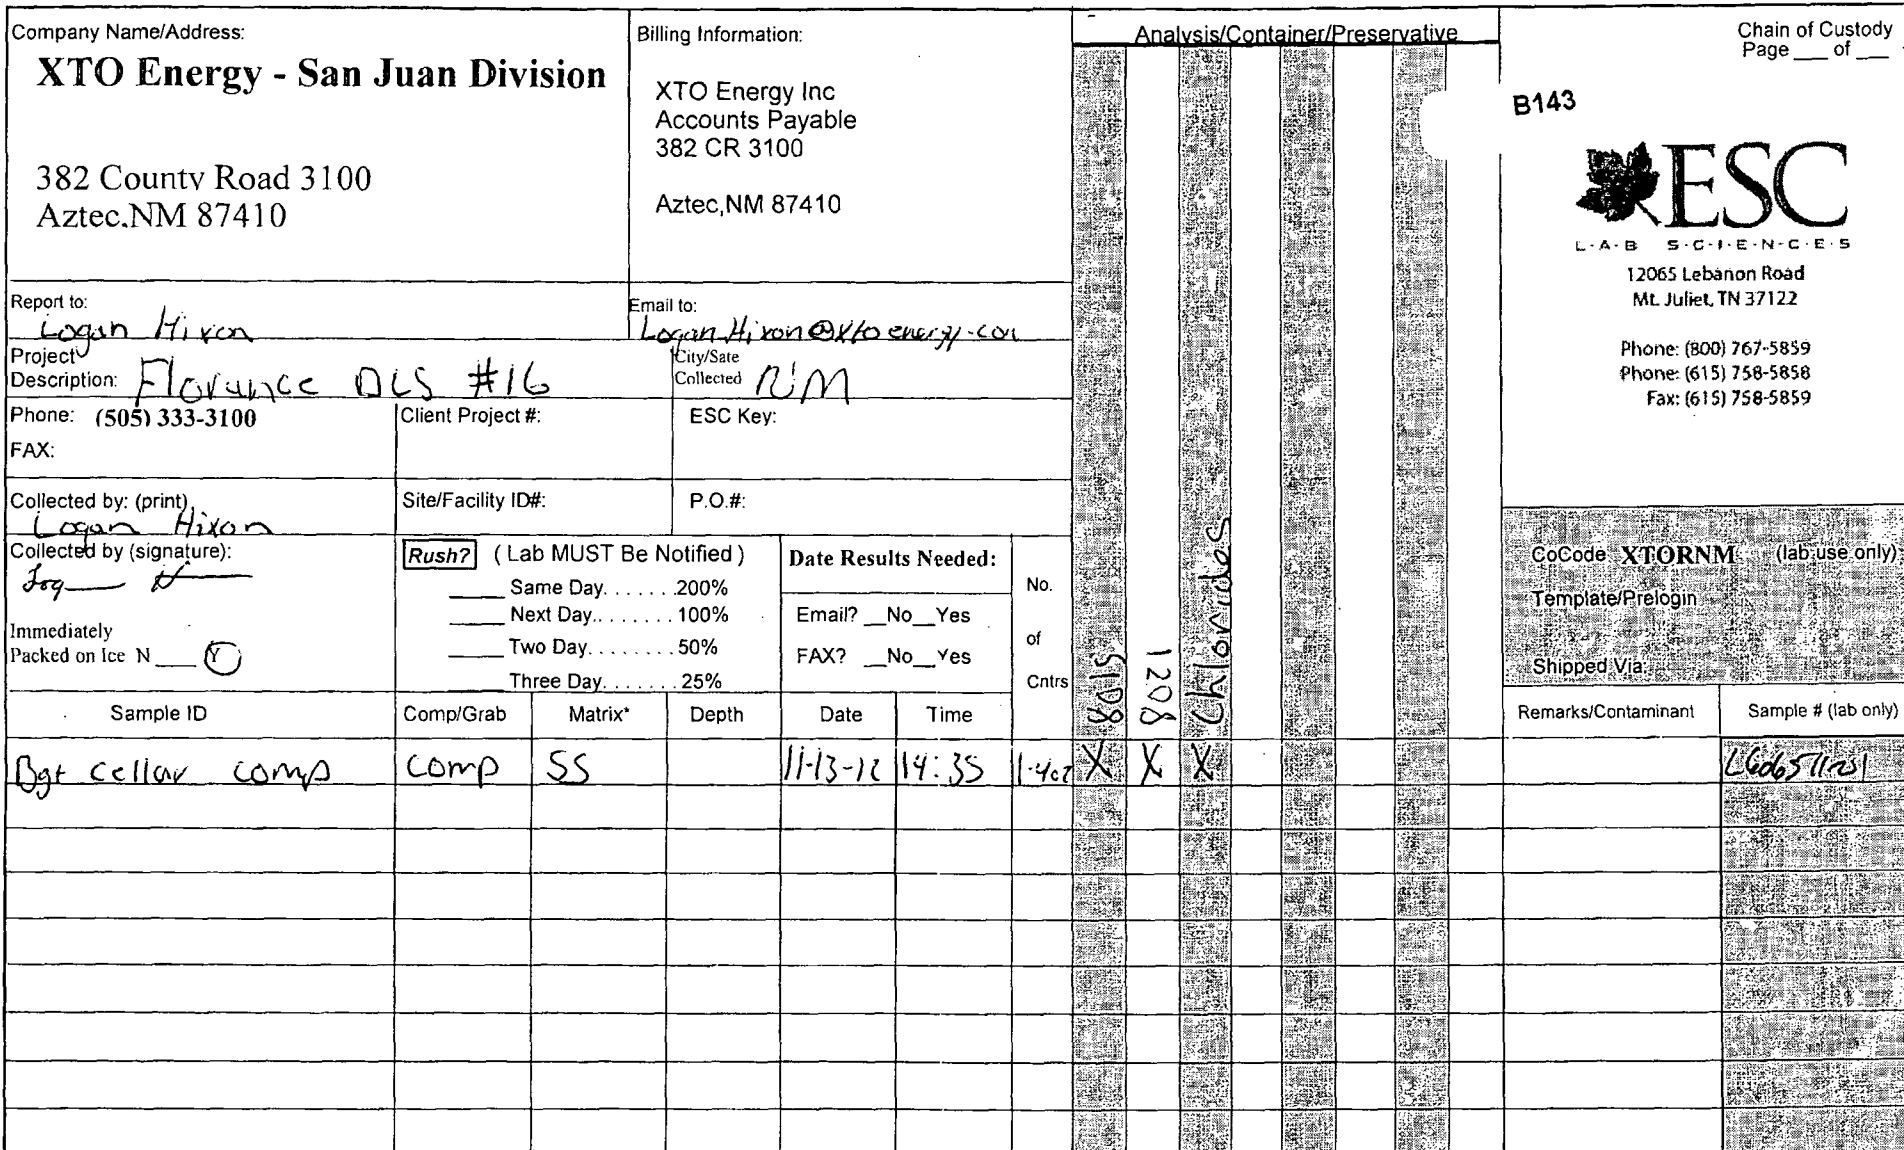 Company Name/Address:
XTO Energy - San Juan Division
382 County Road 3100
Aztec,NM 87410
Billing Information:
XTO Energy Inc
Accounts Payable
382 CR 3100
Aztec,NM 87410
Analysis/Container/Preservative
Chain of Custody
Page ___ of ___
B143
ESC
L·A·B S·C·I·E·N·C·E·S
12065 Lebanon Road
Mt. Juliet, TN 37122
Phone: (800) 767-5859
Phone: (615) 758-5858
Fax: (615) 758-5859
Report to:
Logan Hixon
Email to:
Logan.Hixon@xtoenergy.com
Project
Description: Florance DLS #16
City/Sate
Collected NM
Phone: (505) 333-3100
FAX:
Client Project #:
ESC Key:
Collected by: (print)
Logan Hixon
Site/Facility ID#:
P.O.#:
Collected by (signature):
Immediately
Packed on Ice N ___ Y
Rush? ( Lab MUST Be Notified )
____ Same Day. . . . . . .200%
____ Next Day.. . . . . . . 100%
____ Two Day. . . . . . . . 50%
____ Three Day. . . . . . . 25%
Date Results Needed:
Email? __No__Yes
FAX? __No__Yes
No.
of
Cntrs
8015
1208
Chlorides
CoCode XTORNM (lab use only)
Template/Prelogin
Shipped Via:
Sample ID Comp/Grab Matrix* Depth Date Time Remarks/Contaminant Sample # (lab only)
Bgt cellar comp comp SS 11-13-12 14:35 1-4oz X X X